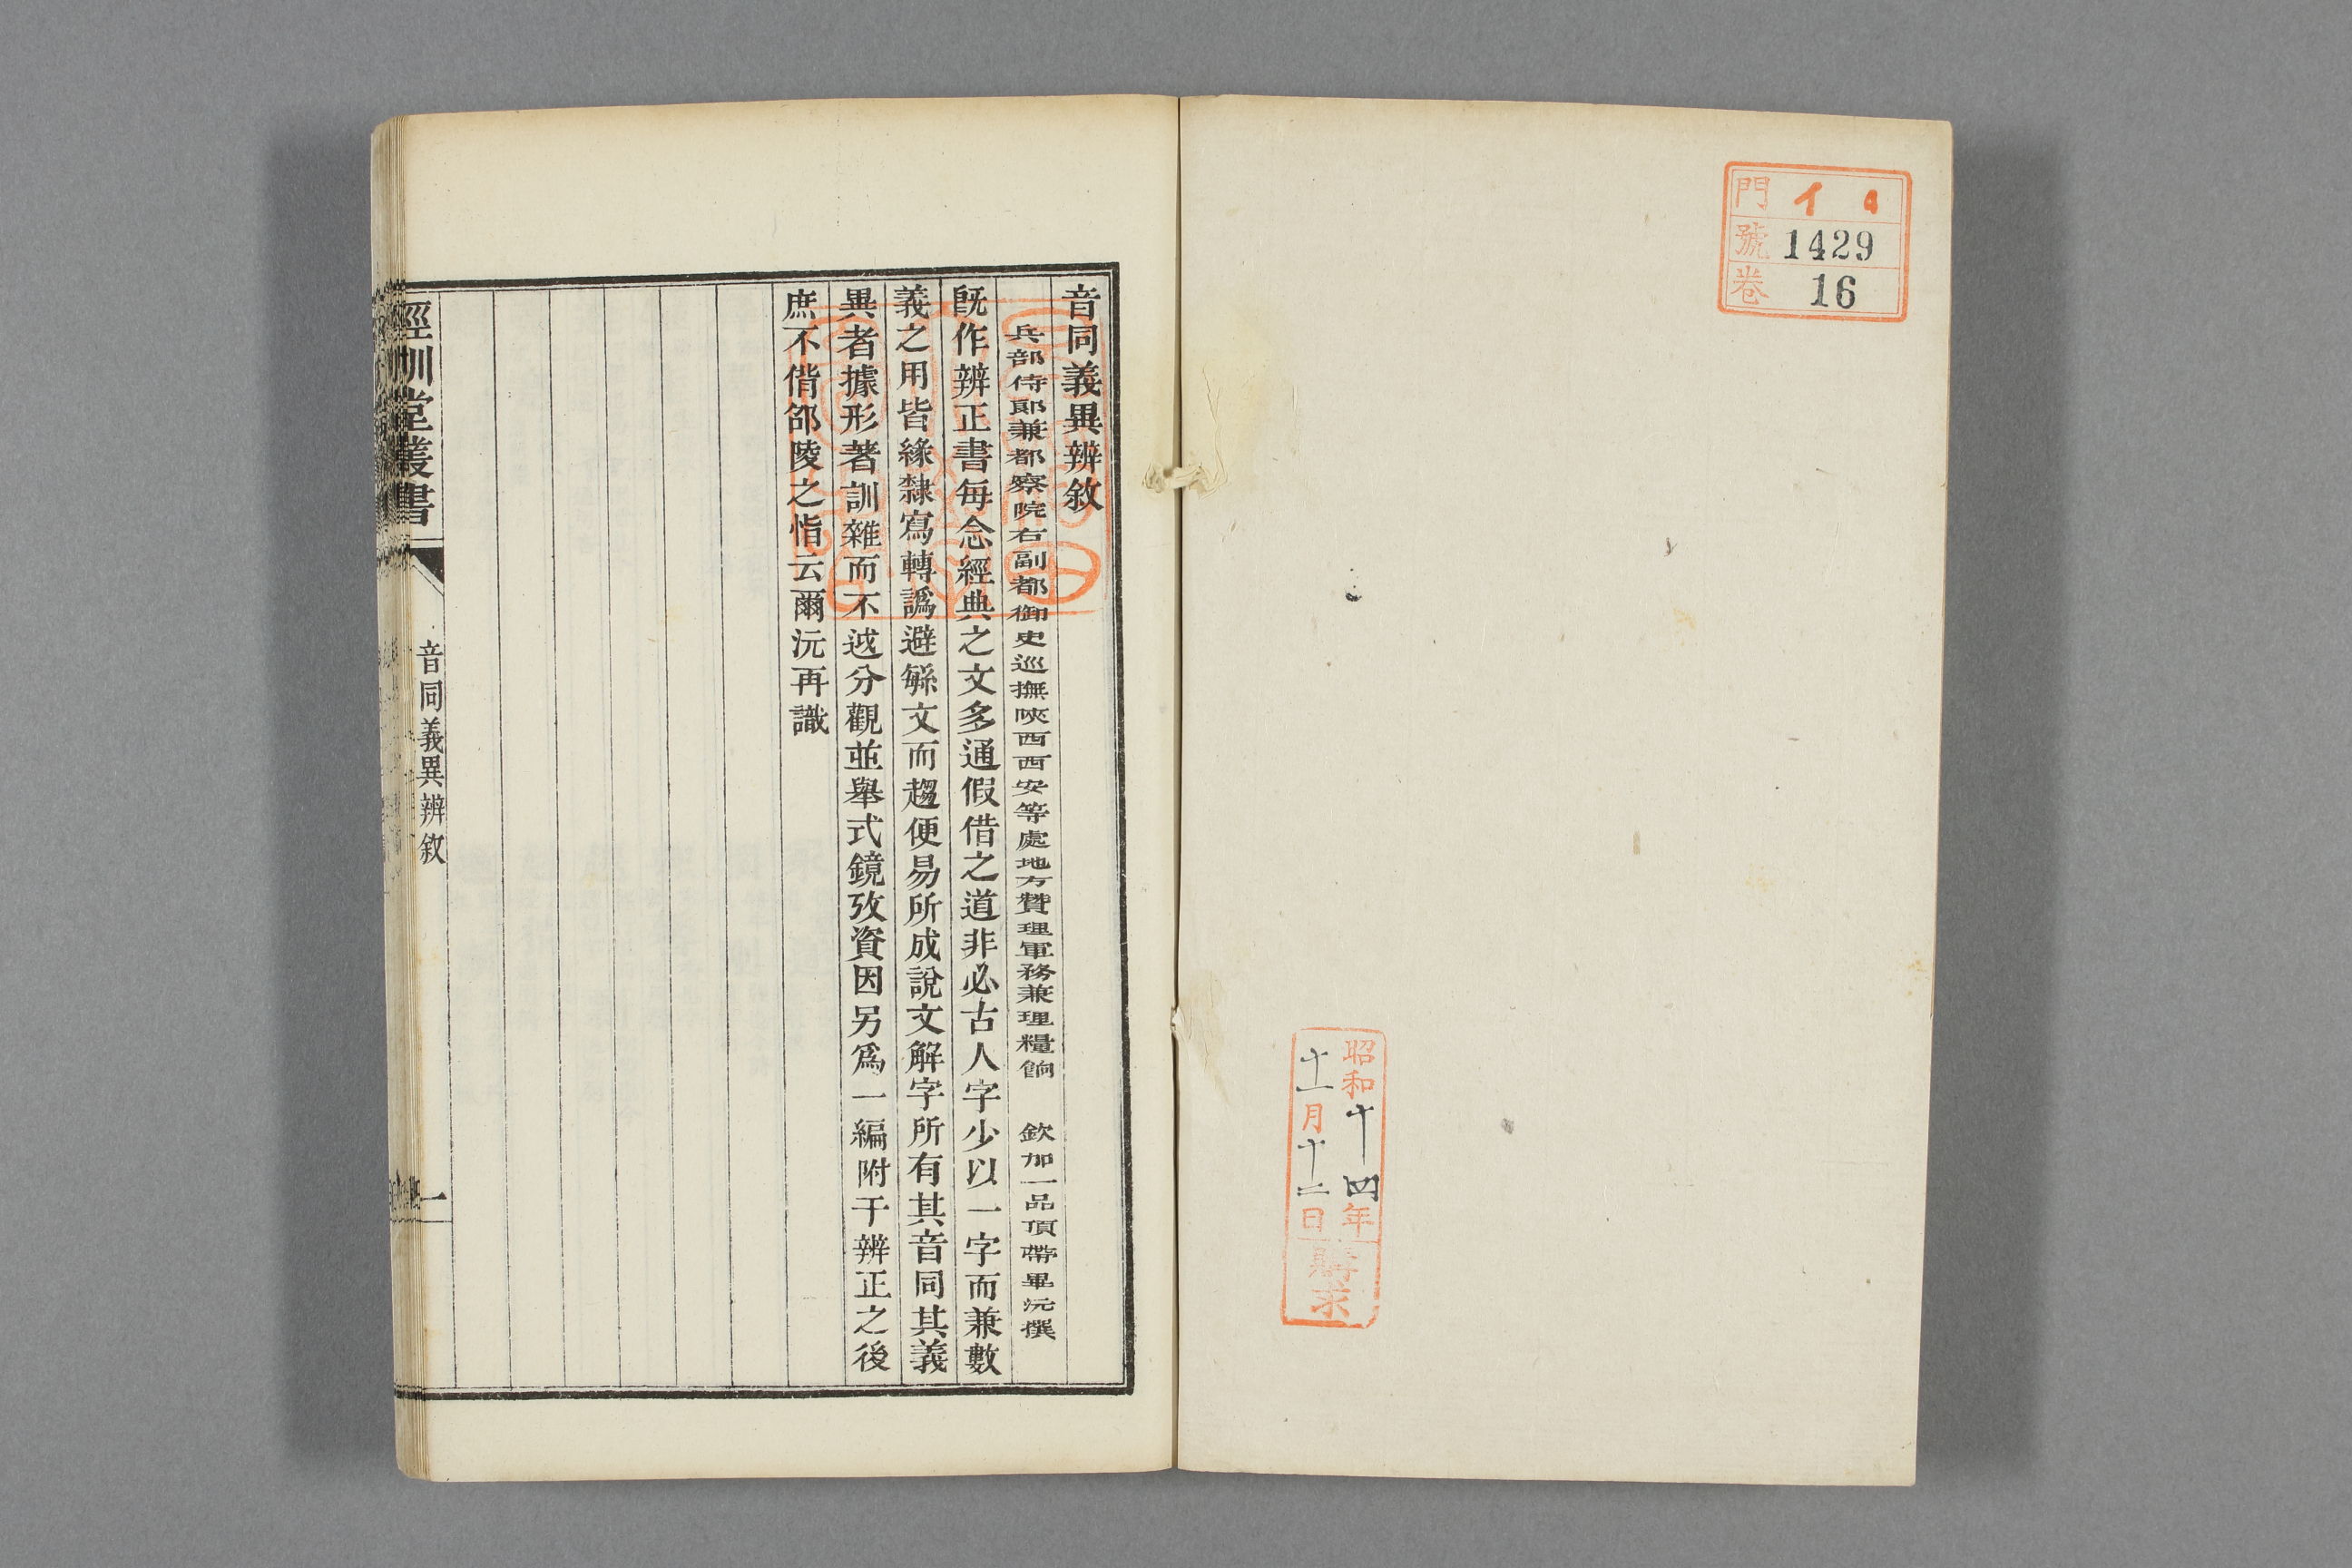 門 イ 4
號 1429
卷 16
昭和十四年
十一月十二日
購求
音同義異辨敘
兵部侍郎兼都察院右副都御史巡撫陝西西安等處地方贊理軍務兼理糧餉 欽加一品頂帶畢沅撰
旣作辨正書每念經典之文多通假借之道非必古人字少以一字而兼數
義之用皆緣隸寫轉譌避緐文而趨便易所成說文解字所有其音同其義
異者據形著訓雜而不越分觀並舉式鏡攷資因另爲一編附于辨正之後
庶不偝郃陵之恉云爾沅再識
經訓堂叢書
音同義異辨敘
一